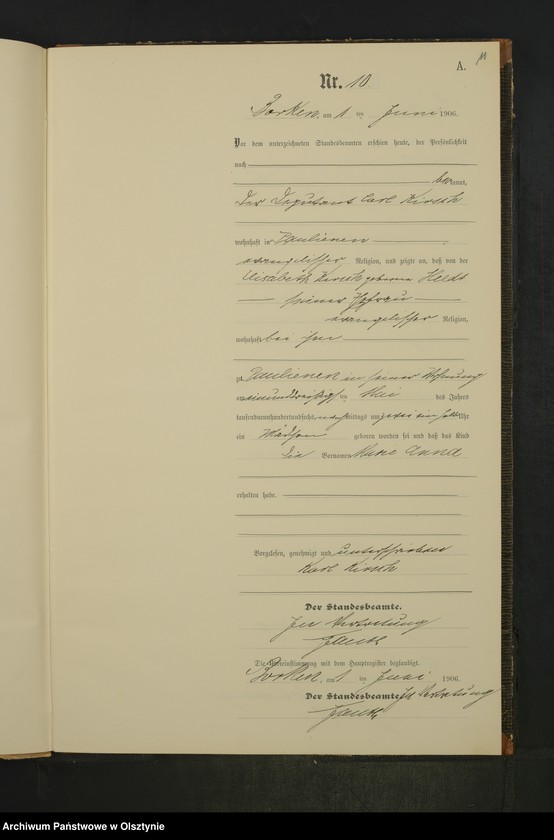 A.
11
Nr. 10.
Borken, am 1 ten Juni 1906.
Vor dem unterzeichneten Standesbeamten erschien heute, der Persönlichkeit
nach
bekannt,
der Deputant Carl Kirsch
wohnhaft in Paulienen
evangelischer Religion, und zeigte an, daß von der
Elisabeth Kirsch geborene Heldt
seiner Ehefrau
evangelischer Religion,
wohnhaft bei ihm
zu Paulienen in seiner Wohnung
am einunddreißigsten Mai des Jahres
tausendneunhundertsechs, nachmittags um zwei ein halb Uhr
ein Mädchen geboren worden sei und daß das Kind
die Vornamen Anna
erhalten habe.
Vorgelesen, genehmigt und unterschrieben
Karl Kirsch
Der Standesbeamte.
In Vertretung
Die Übereinstimmung mit dem Hauptregister beglaubigt.
Borken, am 1 ten Juni 1906.
Der Standesbeamte In Vertretung
Archiwum Państwowe w Olsztynie